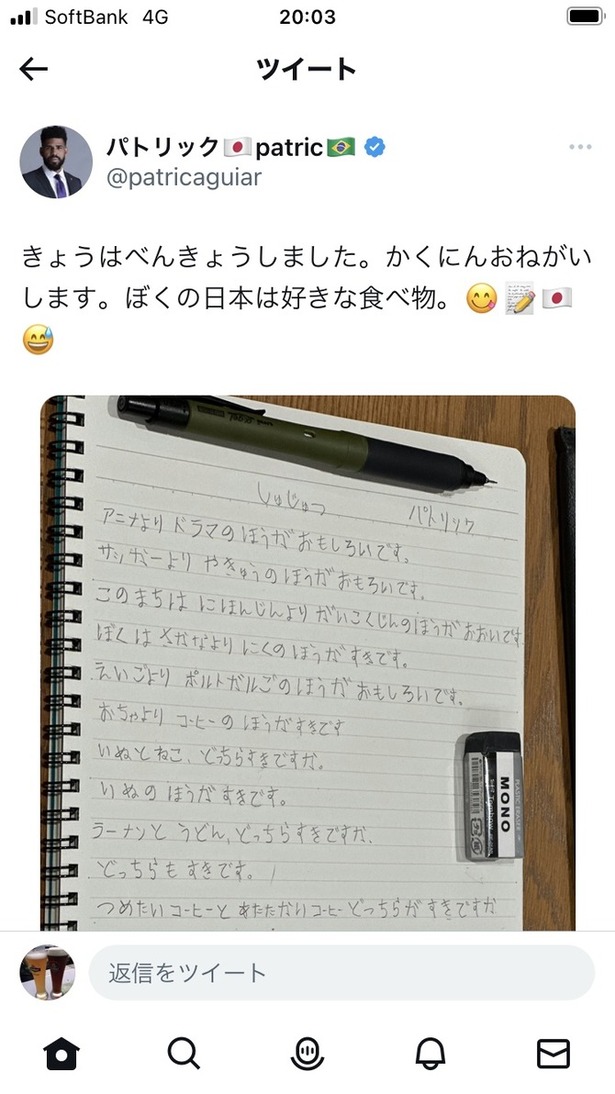 SoftBank 4G 20:03
ツイート
パトリック🇯🇵patric🇧🇷
@patricaguiar
きょうはべんきょうしました。かくにんおねがい
します。ぼくの日本は好きな食べ物。😋📝🇯🇵
😅
しゅじゅつ パトリック
アニメより ドラマのほうがおもしろいです。
サッカーより やきゅうのほうがおもろいです。
このまちは にほんじんより がいこくじんのほうがおおいです
ぼくは さかなより にくのほうがすきです。
えいごより ポルトガルごのほうが おもしろいです。
おちゃより コーヒーの ほうがすきです
いぬとねこ、どっちらすきですか。
いぬの ほうがすきです。
ラーメンと うどん、どっちらすきですか、
どっちらも すきです。
つめたい コーヒーと あたたかい コーヒー どっちらが すきですか
MONO
PLASTIC ERASER
Tombow
返信をツイート